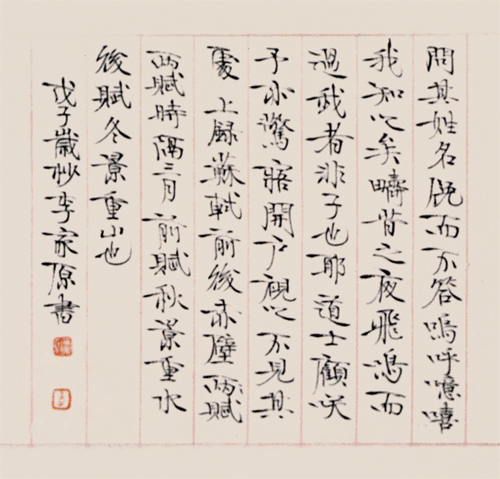 問其姓名俛而不答嗚呼噫嘻
我知之矣疇昔之夜飛鳴而
過我者非子也耶道士顧咲
予亦驚寤開户視之不見其
處 上録蘇軾前後赤壁兩賦
兩賦時隔三月前賦秋景重水
後賦冬景重山也
戊子歲杪李家原書